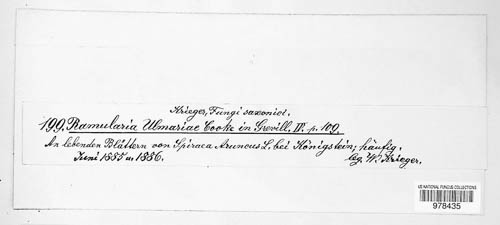 Krieger, Fungi saxonici.
199. Ramularia Ulmariae Cooke in Grevill. IV. p. 109.
An lebenden Blättern von Spiraea Aruncus L. bei Königstein; häufig.
Juni 1885 u. 1886. leg. W. Krieger.
US NATIONAL FUNGUS COLLECTIONS
978435